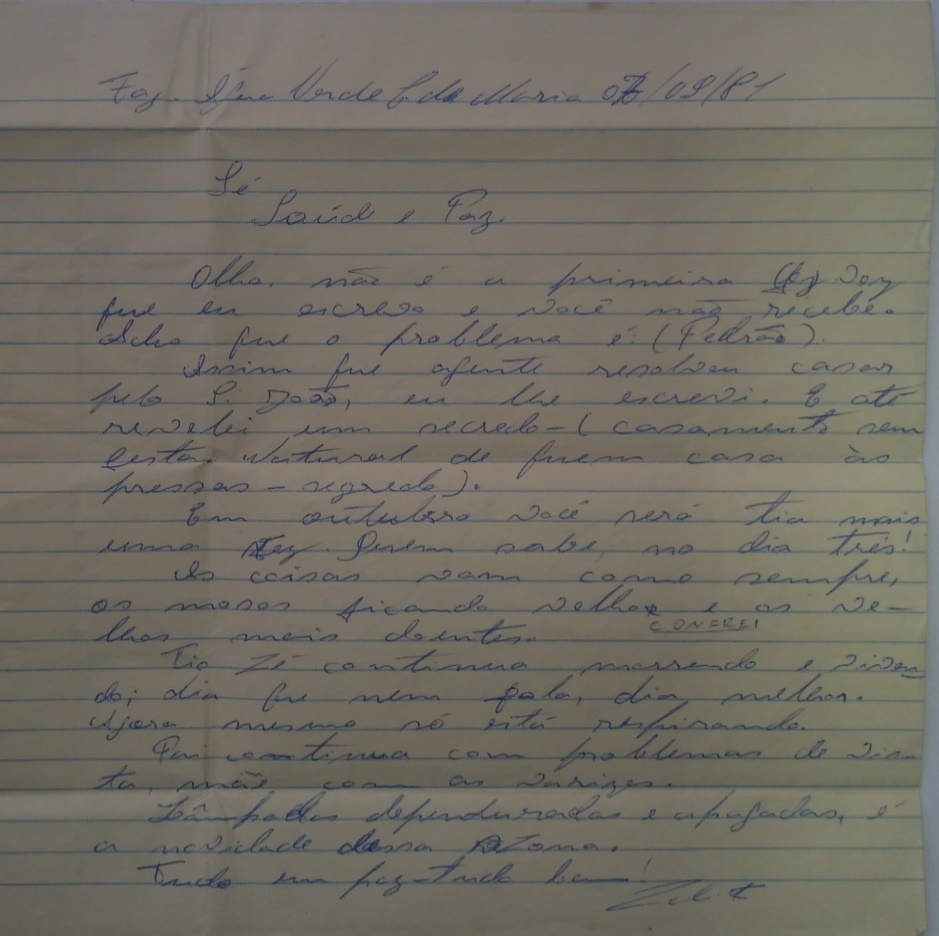 Faz. Água Verde C. da Maria 07/09/81
Sé
Saúde e Paz.
Olha, não é a primeira vez
que eu escrevo e você não recebe.
Acho que o problema é: (Pedrão).
Assim que agente resolveu casar
pelo S. João, eu lhe escrevi. E até
revelei um secredo - (casamento sem
festa. Natural de quem casa às
pressas - segredo).
Em outubro você será tia mais
uma vez. Quem sabe, no dia três!
As coisas vam como sempre,
os mosos ficando velhos e os ve-
lhos mais doentes.
Tio Zé continua morrendo e viven
do; dia que nem fala, dia melhor.
Agora mesmo só está respirando.
Pai continua com problemas de vis-
ta, mãe com as varizes.
Lâmpadas dependuradas e apagadas, é
a novidade dessa zona.
Tudo em paz - tudo bem!